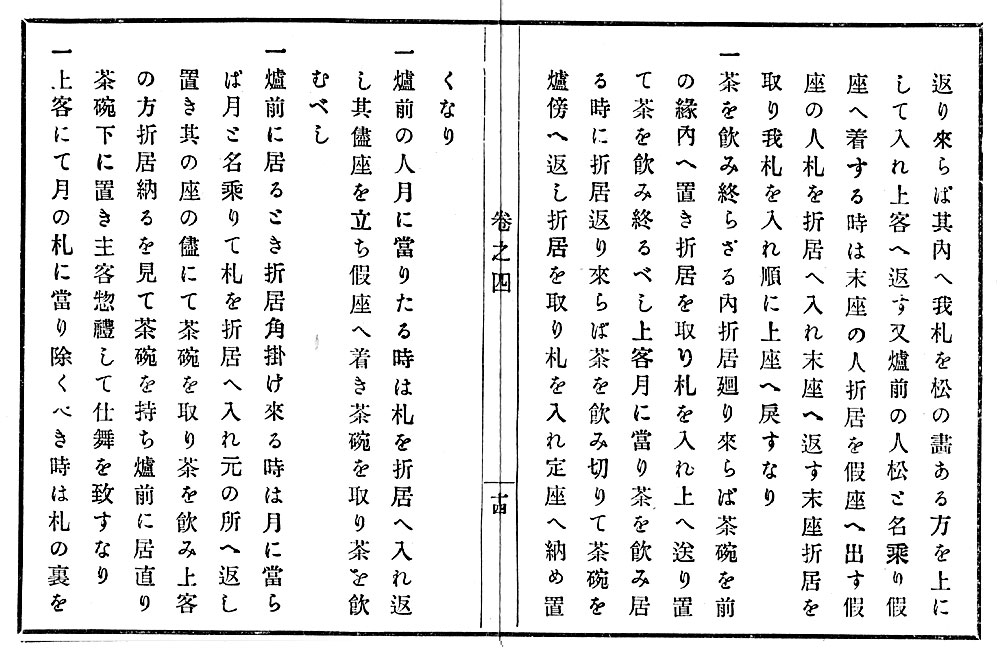 返り來らば其内へ我札を松の畵ある方を上に
して入れ上客へ返す又爐前の人松と名乘り假
座へ着する時は末座の人折居を假座へ出す假
座の人札を折居へ入れ末座へ返す末座折居を
取り我札を入れ順に上座へ戻すなり
一茶を飮み終らざる内折居廻り來らば茶碗を前
の緣内へ置き折居を取り札を入れ上へ送り置
て茶を飮み終るべし上客月に當り茶を飮み居
る時に折居返り來らば茶を飮み切りて茶碗を
爐傍へ返し折居を取り札を入れ定座へ納め置
卷之四
十四
くなり
一爐前の人月に當りたる時は札を折居へ入れ返
し其儘座を立ち假座へ着き茶碗を取り茶を飮
むべし
一爐前に居るとき折居角掛け來る時は月に當ら
ば月と名乘りて札を折居へ入れ元の所へ返し
置き其の座の儘にて茶碗を取り茶を飮み上客
の方折居納るを見て茶碗を持ち爐前に居直り
茶碗下に置き主客惣禮して仕舞を致すなり
一上客にて月の札に當り除くべき時は札の裏を